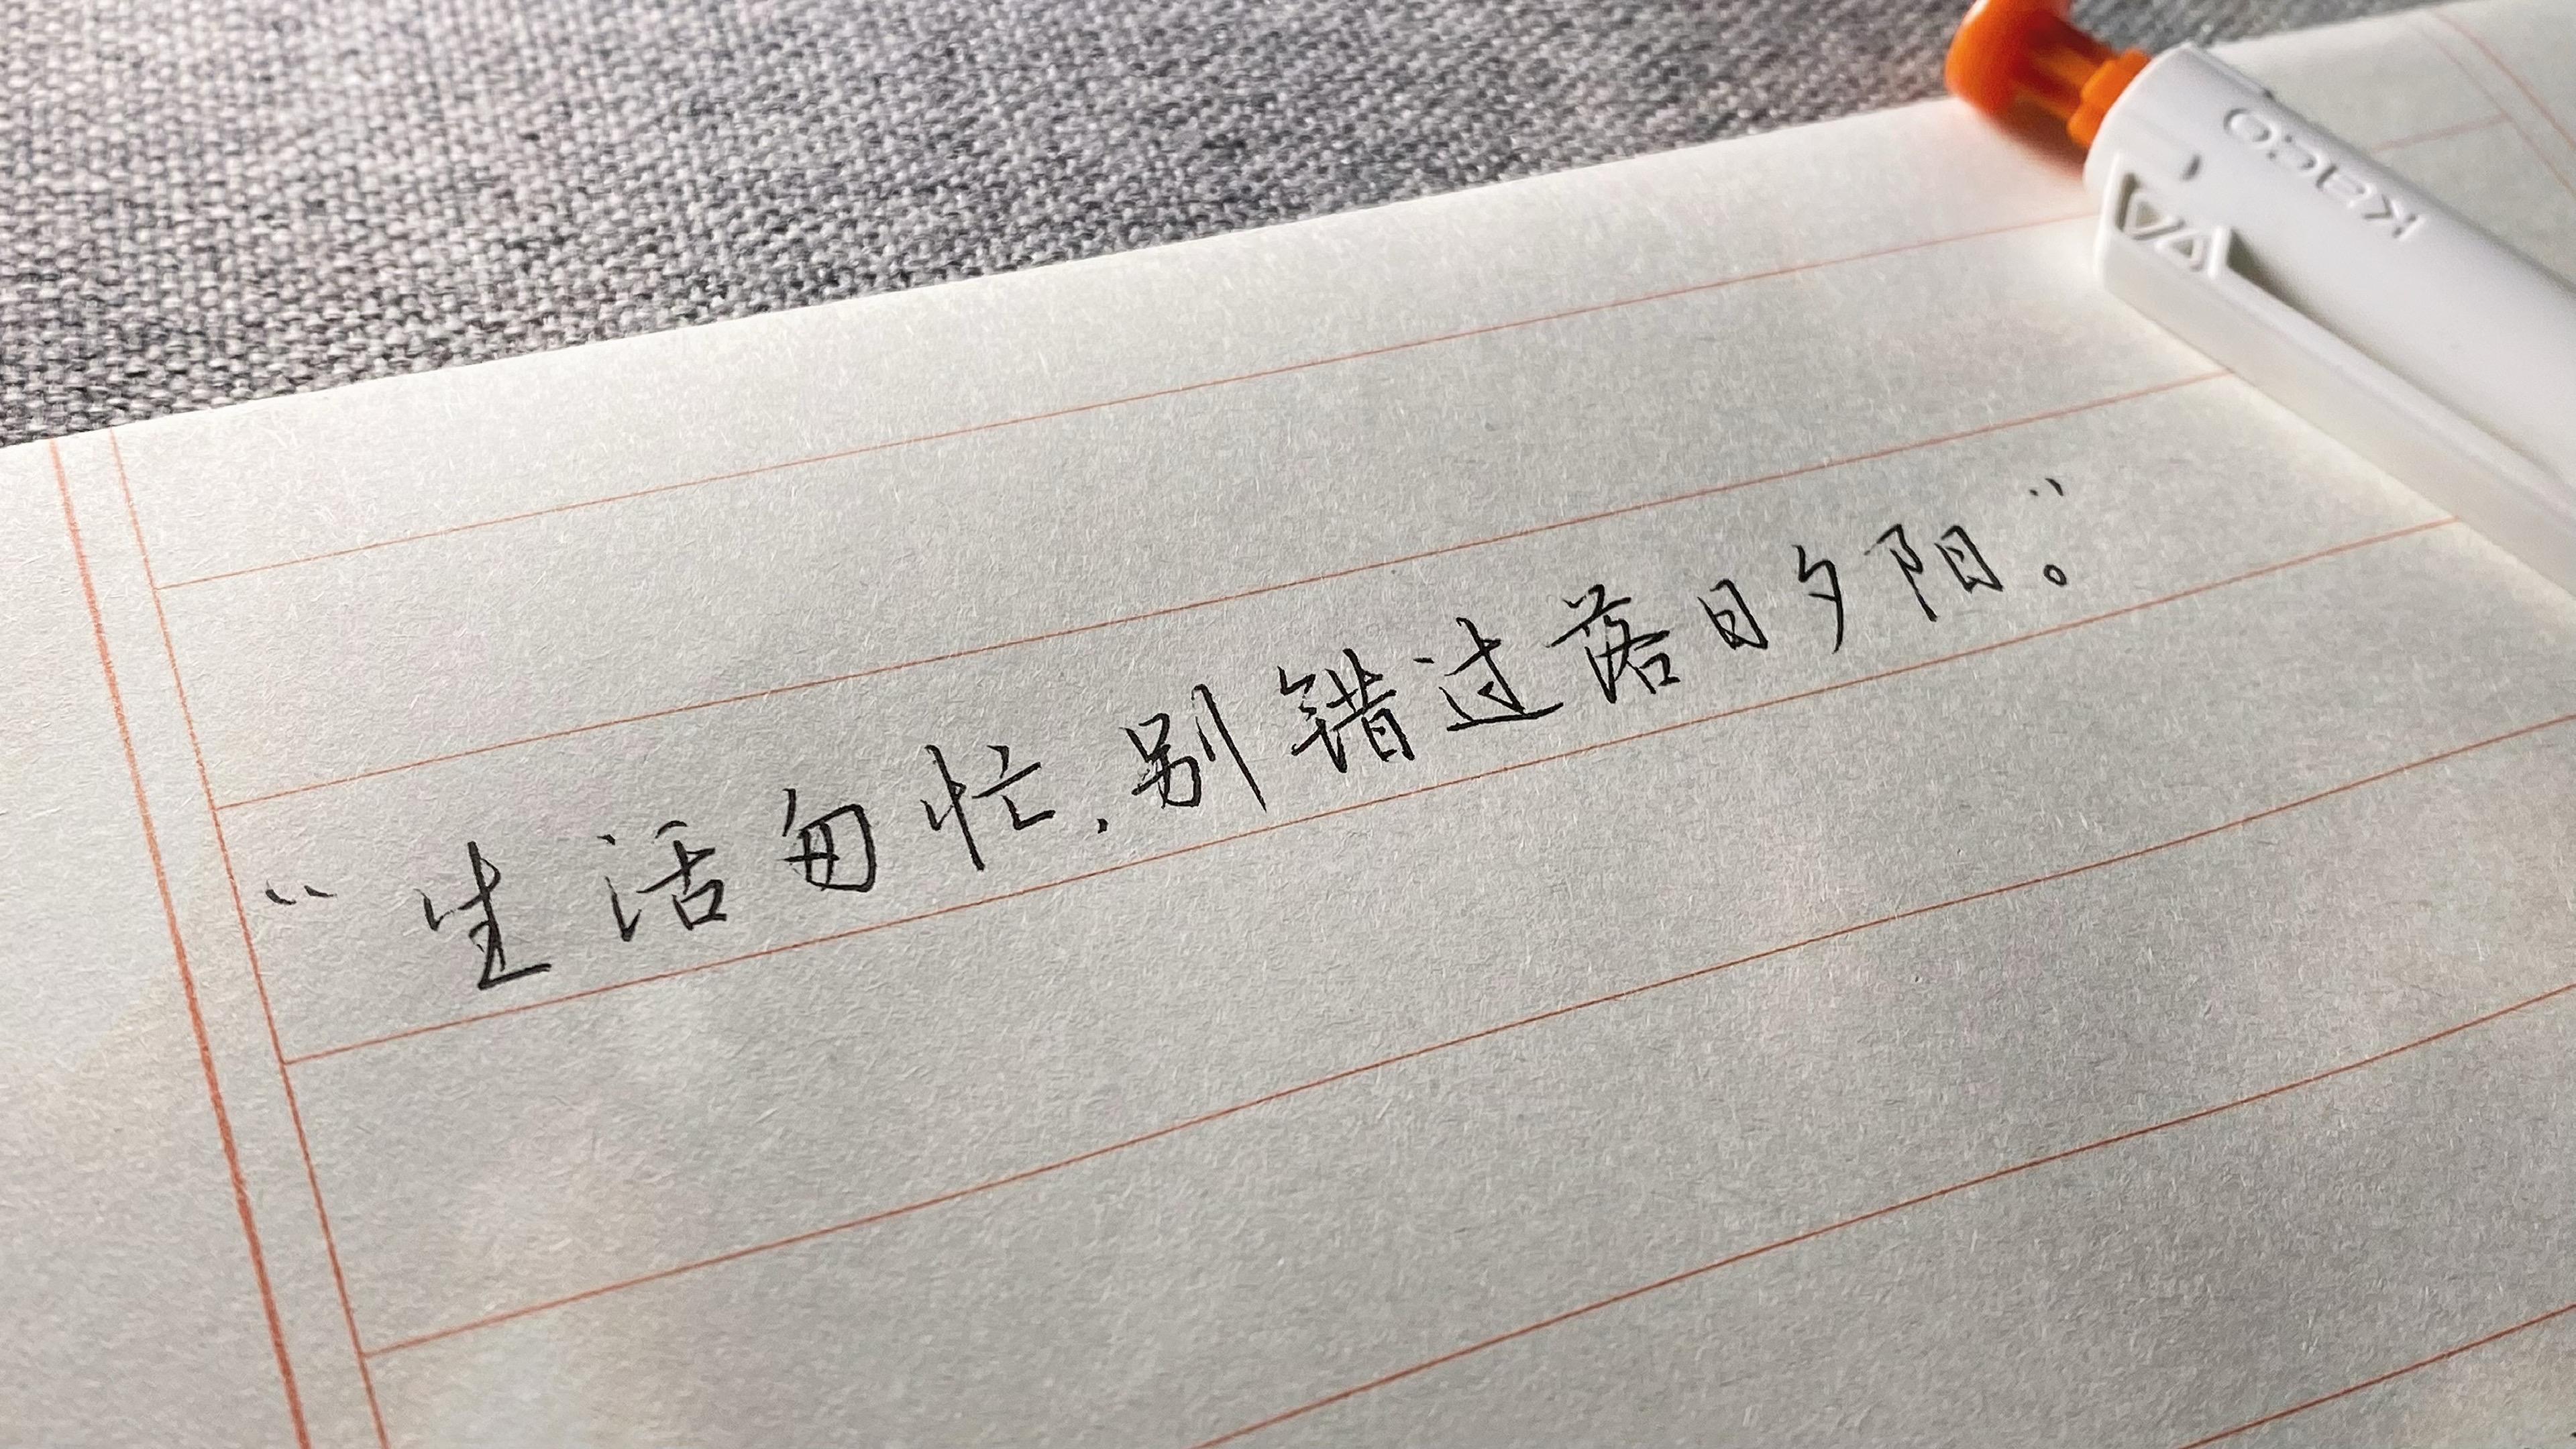 “生活匆忙，别错过落日夕阳。”
KACO